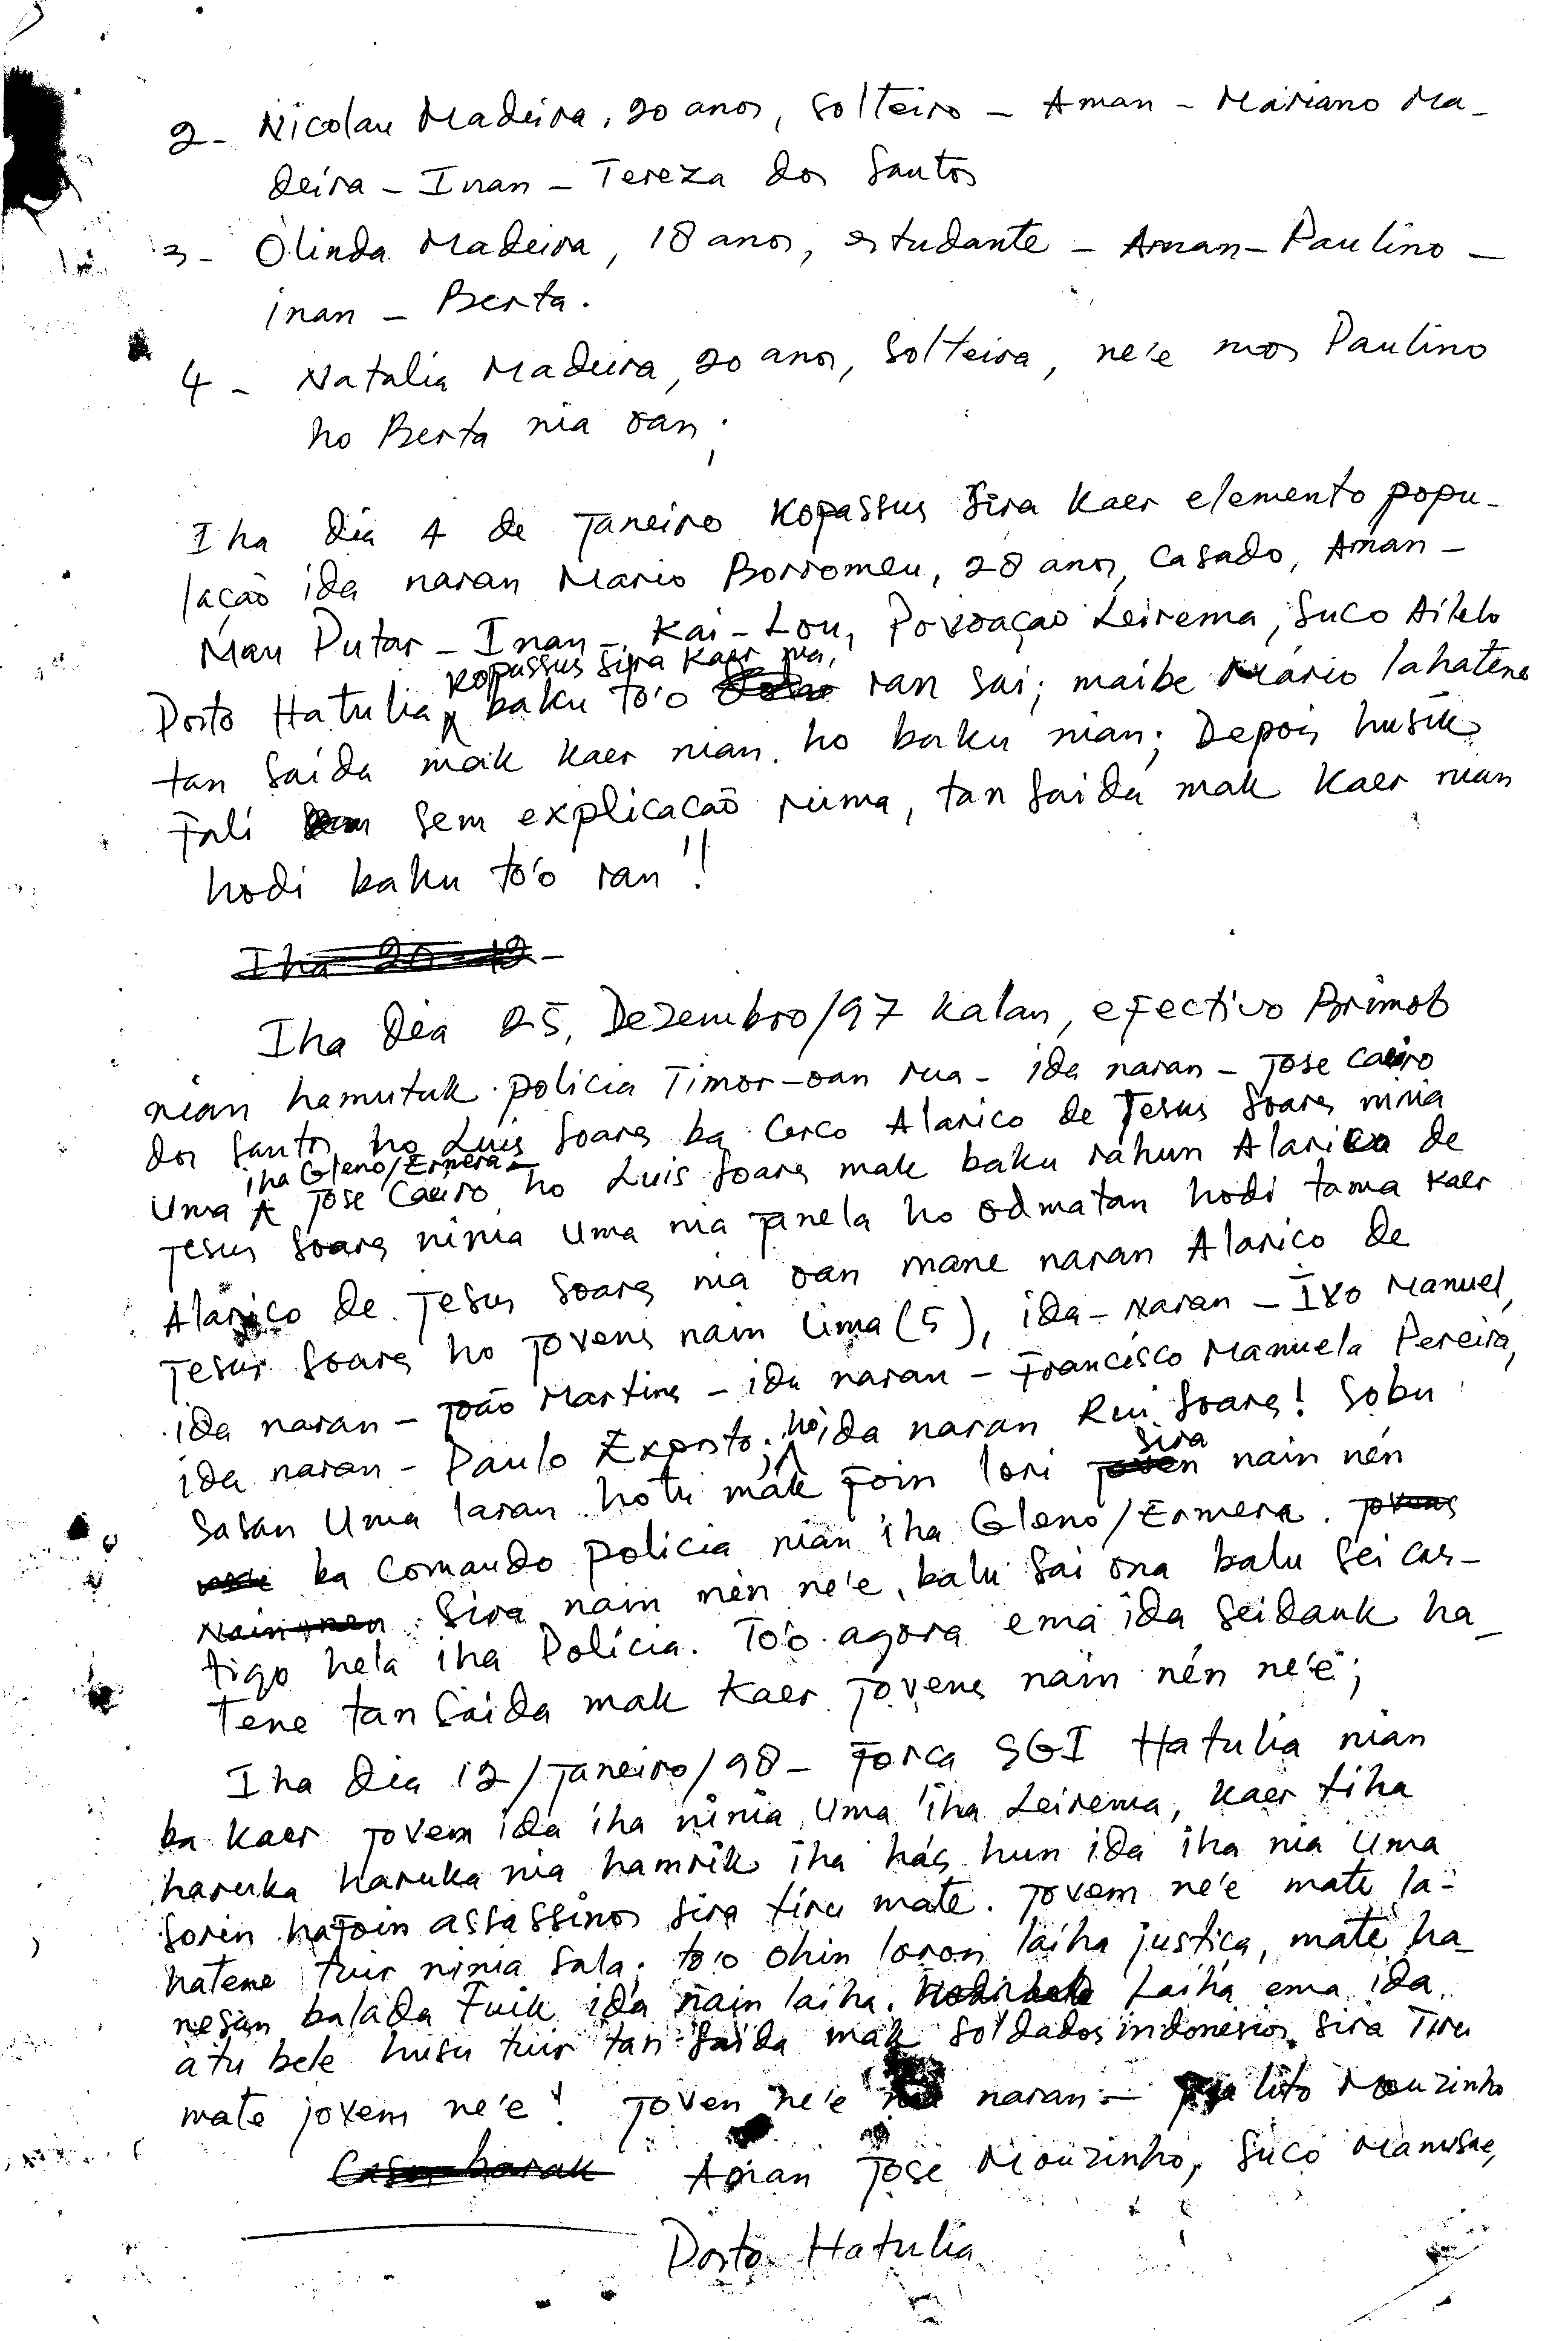 2- Nicolau Madeira, 20 anos, solteiro - Aman - Mariano Ma-
deira - Inan - Tereza dos Santos
3- Olinda Madeira, 18 anos, estudante - Aman - Paulino -
inan - Berta.
4- Natalia Madeira, 20 anos, solteira, ne'e mos Paulino
ho Berta nia oan;
Iha dia 4 de Janeiro Kopassus sira kaer elemento popu-
lação ida naran Mario Borromeu, 28 anos, casado, Aman -
Mau Putar - Inan - Kai-Lou, Povoaçao Leirema, Suco Ailelo
kopassus sira kaer nia,
Posto Hatulia, baku to'o ran sai; maibe Mário lahatene
tan saida mak kaer nian ho baku nian; Depois husik
fali sem explicacaõ ruma, tan saida mak kaer nian
hodi baku to'o ran!!
Iha 20-12-
Iha dia 25, Dezembro/97 kalan, efectivo Brimob
nian hamutuk policia Timor-oan rua - ida naran - Jose Caeiro
dos Santos ho Luis Soares ba cerco Alarico de Jesus Soares ninia
iha Gleno/Ermera -
Uma Jose Caeiro ho Luis Soares mak baku rahun Alarico de
Jesus Soares ninia uma nia janela ho odmatan hodi tama kaer
Alarico de Jesus Soares nia oan mane naran Alarico de
Jesus Soares ho jovens nain lima (5), ida - naran - Ivo Manuel,
ida naran - João Martins - ida naran - Francisco Manuela Pereira,
ida naran - Paulo Exposto, ho ida naran Rui Soares! Sobu
sira
sasan Uma laran hotu mak foin lori joven nain nén
ba Comando policia nian iha Gleno/Ermera. Jovens
nain nen sira nain nén ne'e, balu sai ona balu sei cas-
tigo hela iha Polícia. To'o agora ema ida seidauk ha-
tene tan saida mak kaer jovens nain nén ne'e;
Iha dia 12/Janeiro/98 - Forca SGI Hatulia nian
ba kaer jovem ida iha ninia uma iha Leirema, kaer tiha
haruka haruka nia hamrik iha hás hun ida iha nia uma
sorin hafoin assassinos sira tiru mate. Jovem ne'e mate la-
hatene tuir ninia sala; to'o ohin loron laiha justiça, mate ha-
nesan balada fuik ida nain laiha. Laiha ema ida
atu bele husu tuir tan saida mak soldados indonesios sira tiru
mate jovem ne'e! Joven ne'e naran - lito Mouzinho
Casu barak Aman Jose Mouzinho, Suco Manusae,
Posto Hatulia